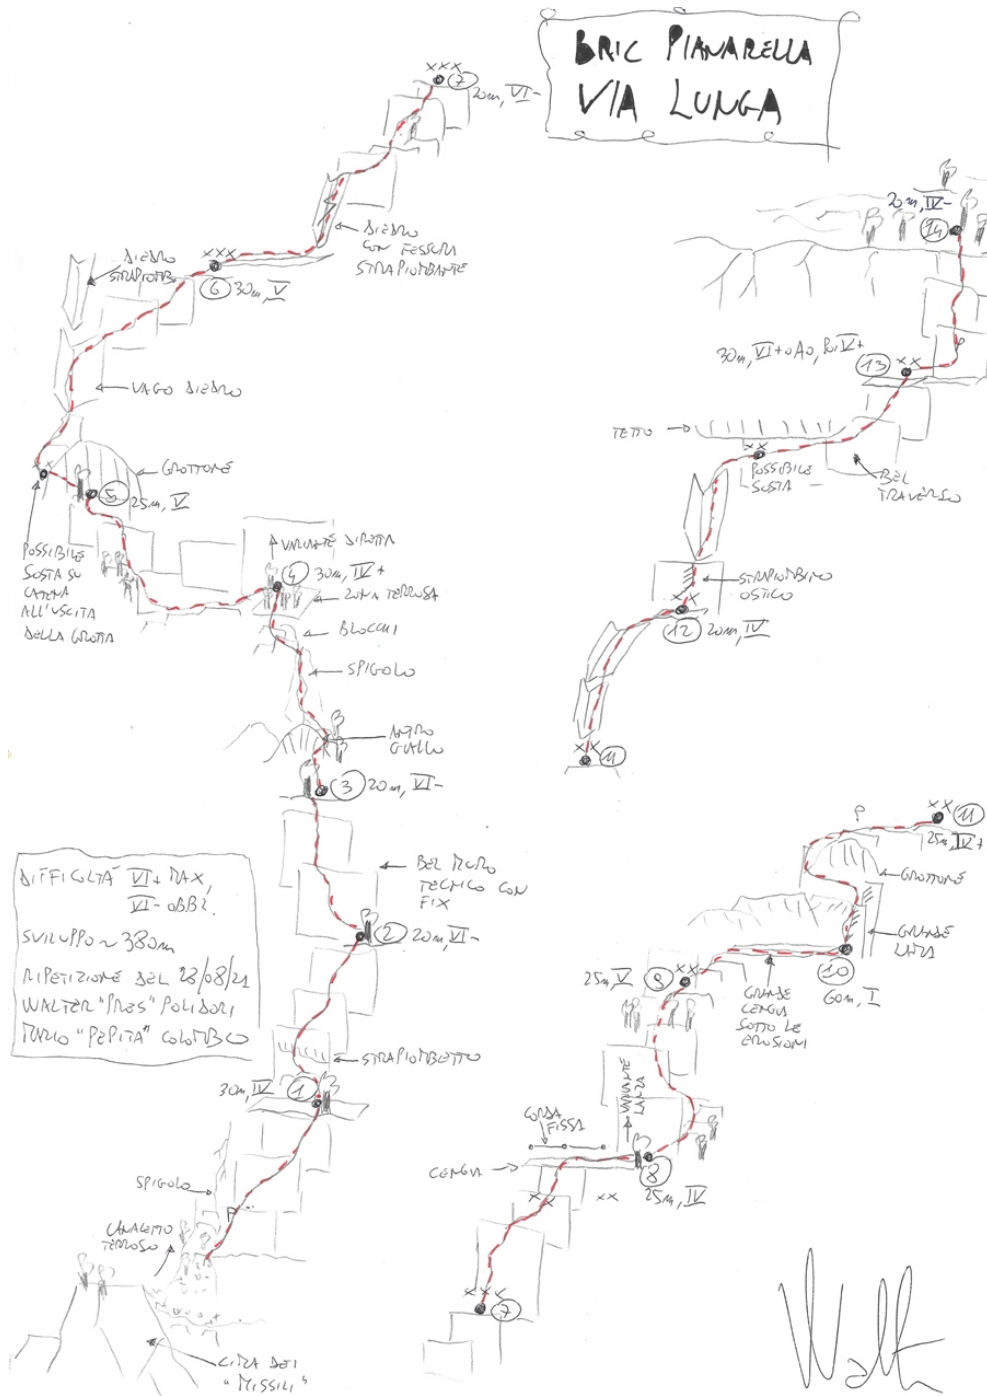 BRIC PIANARELLA
VIA LUNGA
XXX
7
20m, VI-
DIEDRO
CON FESSURA
STRAPIOMBANTE
DIEDRO
STRAPIOMB.
XXX
6
30m, V
VAGO DIEDRO
GROTTONE
XX
5
25m, V
POSSIBILE
SOSTA SU
CATENA
ALL'USCITA
DELLA GROTTA
VARIANTE DIRETTA
4
30m, IV+
ZONA TERROSA
BLOCCHI
SPIGOLO
ANTRO
GIALLO
3
20m, VI-
BEL MURO
TECNICO CON
FIX
2
20m, VI-
STRAPIOMBETTO
30m, IV
1
SPIGOLO
P
CANALETTO
TERROSO
CIMA DEI
"MISSILI"
DIFFICOLTÀ VI+ MAX,
VI- OBBL.
SVILUPPO ~ 380m
RIPETIZIONE DEL 28/08/21
WALTER "PRES" POLIDORI
MARIO "PEPITA" COLOMBO
20m, IV-
14
P
30m, VI+ o A0, POI V+
13
XX
TETTO
XX
POSSIBILE
SOSTA
BEL
TRAVERSO
STRAPIOMBINO
OSTICO
XX
12
20m, IV
XX
11
P
XX
11
25m, IV+
GROTTONE
GRANDE
LAMA
10
60m, I
GRANDE
CENGIA
SOTTO LE
EROSIONI
25m, V
9
XX
VARIANTE
LANZA
CORDA
FISSA
CENGIA
8
25m, IV
XX
XX
XXX
7